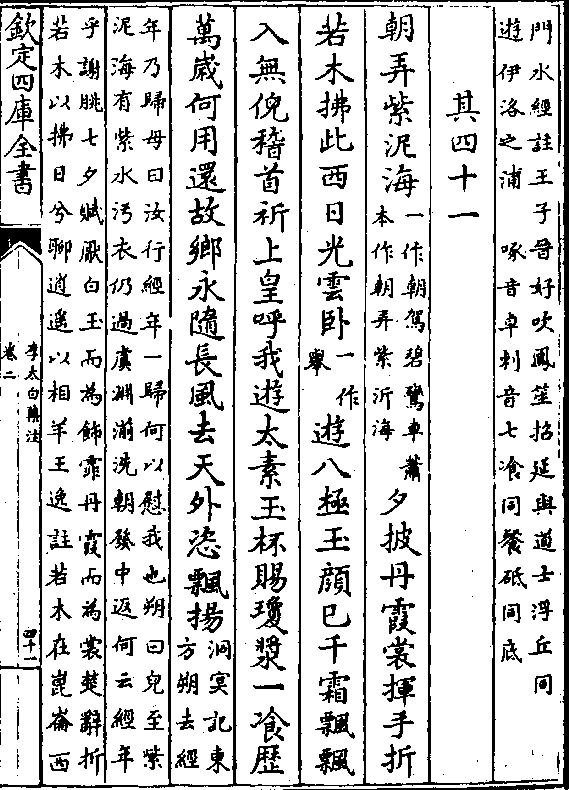 門水經註王子晉好吹鳳笙招延與道士浮丘同
遊伊洛之浦　啄音卓刺音七飡同餐砥同底
其四十一
朝弄紫泥海一作朝駕碧鸞車蕭本作朝弄紫沂海夕披丹霞裳揮手折
若木拂此西日光雲卧一作舉遊八極玉顔已千霜飄飄
入無倪稽首祈上皇呼我遊太素玉杯賜瓊漿一飡歴
萬歲何用還故鄉永隨長風去天外恣飄揚洞冥記東方朔去經
年乃歸母曰汝行經年一歸何以慰我也朔曰兒至紫
泥海有紫水汚衣仍過虞淵湔洗朝發中返何云經年
乎謝朓七夕賦厭白玉而為飾霏丹霞而為裳楚辭折
若木以拂日兮聊逍遙以相羊王逸註若木在崑崙西
欽定四庫全書
李太白集注
卷二
四十一